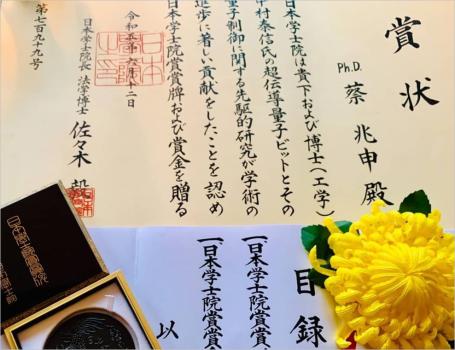 賞状
Ph.D. 蔡兆申殿
日本学士院は貴下および博士(工学)
中村泰信氏の超伝導量子ビットとその
量子制御に関する先駆的研究が学術の
進歩に著しい貢献をしたことを認め
日本学士院賞賞牌および賞金を贈る
令和五年六月十二日
日本学士院長 法学博士 佐々木毅
第七百九十九号
目録
一、日本学士院賞賞
一、日本学士院賞賞
以